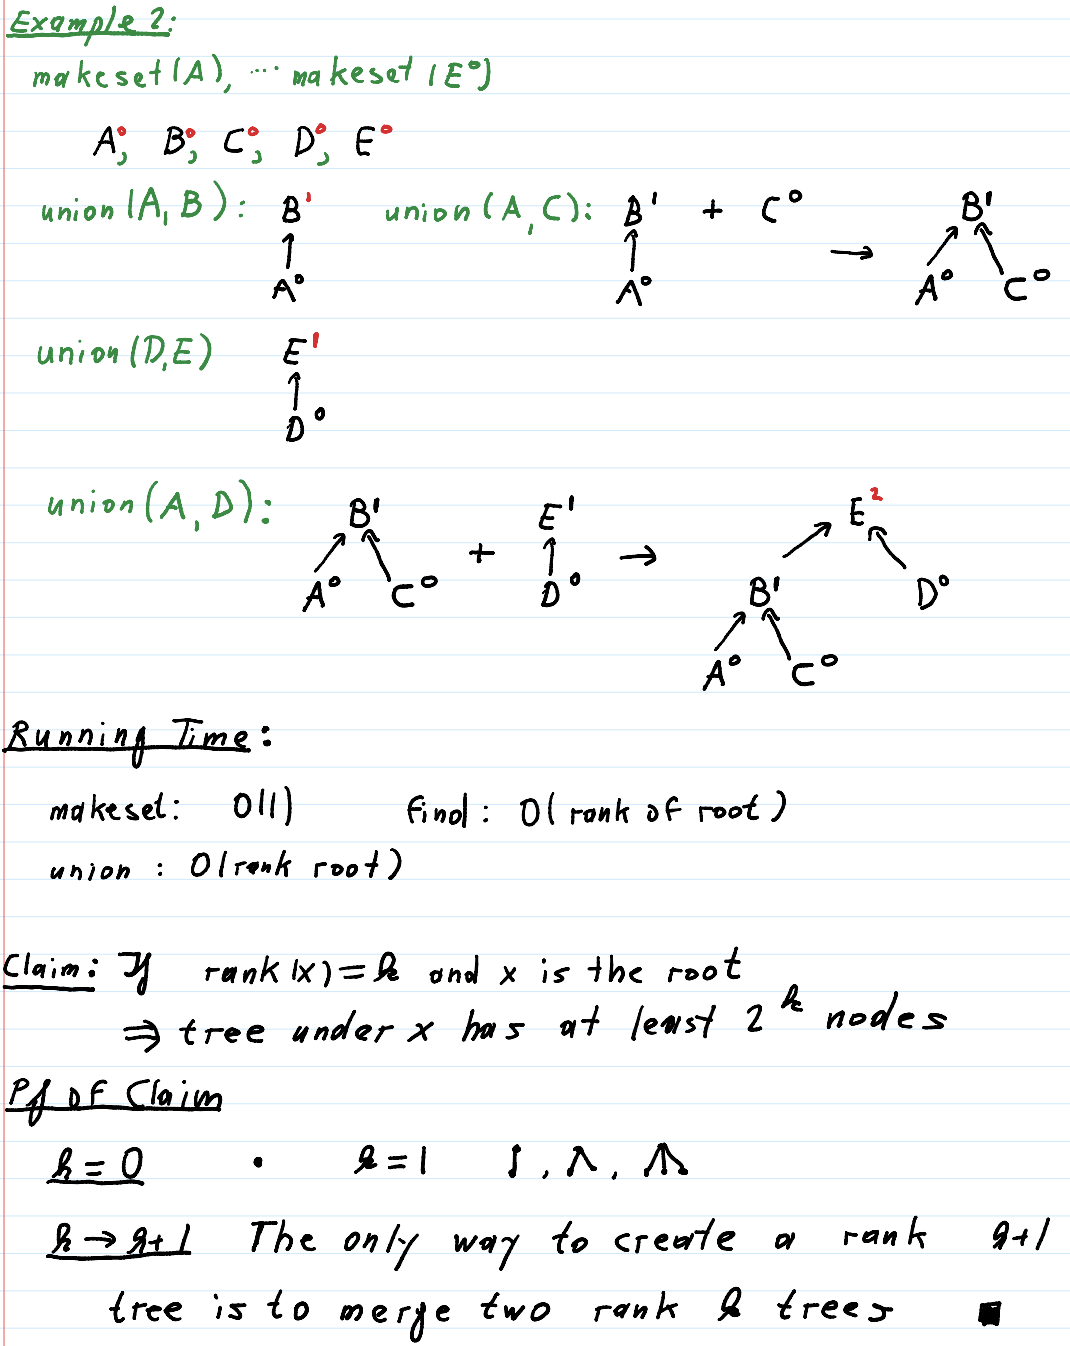 Example 2:
makeset(A), ... makeset(E°)
A⁰, B⁰, C⁰, D⁰, E⁰
union(A, B): B¹ union(A, C): B¹ + C⁰ → B¹
A⁰ A⁰ A⁰ C⁰
union(D,E) E¹
D⁰
union(A, D): B¹ + E¹ → E²
A⁰ C⁰ D⁰ B¹ D⁰
A⁰ C⁰
Running Time:
makeset: O(1) find: O(rank of root)
union : O(rank root)
Claim: If rank(x) = k and x is the root
⇒ tree under x has at least 2^k nodes
Pf of Claim
k = 0 k = 1
k → k+1 The only way to create a rank k+1
tree is to merge two rank k trees ■